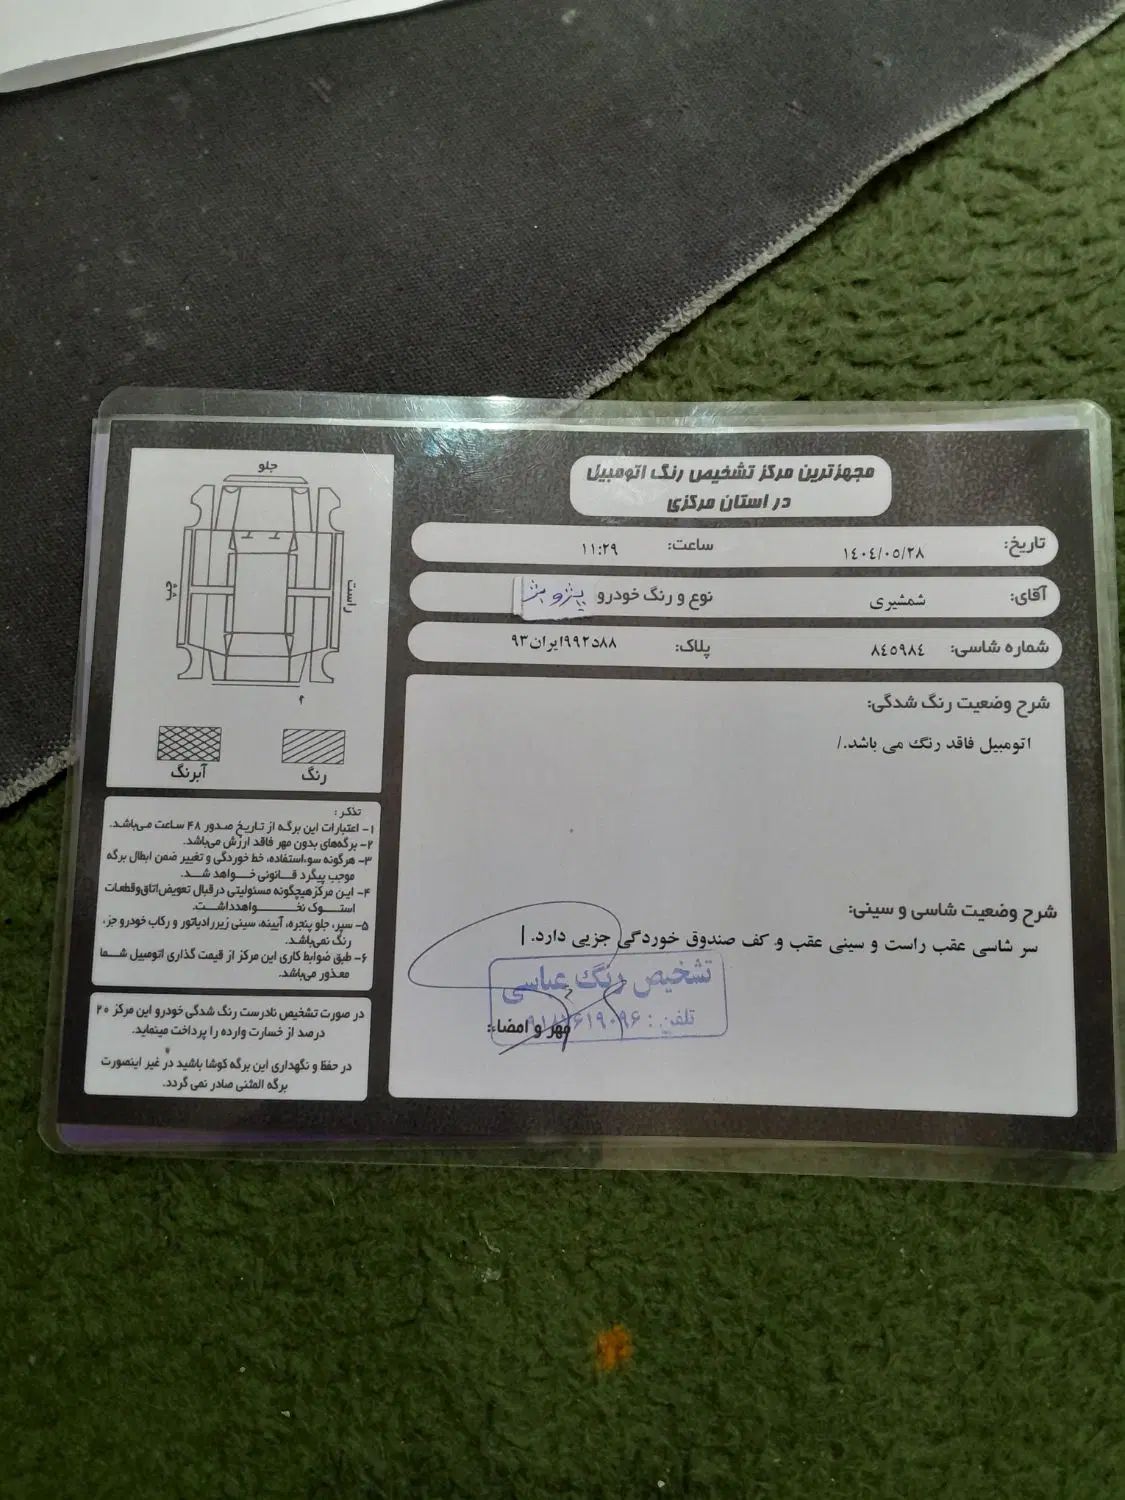 مجهزترین مرکز تشخیص رنگ اتومبیل
در استان مرکزی
تاریخ: ۱۴۰۴/۰۵/۲۸ ساعت: ۱۱:۲۹
آقای: شمشیری نوع و رنگ خودرو پژو بژ
شماره شاسی: ۸۴۵۹۸۴ پلاک: ۸۸د۹۹۲ایران۹۳
شرح وضعیت رنگ شدگی:
اتومبیل فاقد رنگ می باشد./
شرح وضعیت شاسی و سینی:
سر شاسی عقب راست و سینی عقب و کف صندوق خوردگی جزیی دارد.
تشخیص رنگ عباسی
تلفن:
مهر و امضاء:
جلو
راست
چپ
رنگ
آبرنگ
تذکر:
۱- اعتبارات این برگه از تاریخ صدور ۴۸ ساعت می‌باشد.
۲- برگه‌های بدون مهر فاقد ارزش می‌باشد.
۳- هرگونه سوءاستفاده، خط خوردگی و تغییر ضمن ابطال برگه
موجب پیگرد قانونی خواهد شد.
۴- این مرکز هیچگونه مسئولیتی در قبال تعویض اتاق و قطعات
استوک نخواهد داشت.
۵- سپر، جلو پنجره، آیینه، سینی زیر رادیاتور و رکاب خودرو جزء
رنگ نمی‌باشد.
۶- طبق ضوابط کاری این مرکز از قیمت گذاری اتومبیل شما
معذور می‌باشد.
در صورت تشخیص نادرست رنگ شدگی خودرو این مرکز ۲۰
درصد از خسارت وارده را پرداخت مینماید.
در حفظ و نگهداری این برگه کوشا باشید در غیر اینصورت
برگه المثنی صادر نمی گردد.